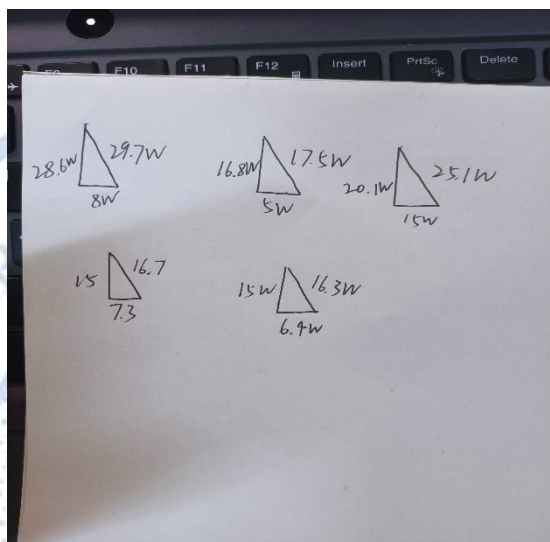 F10 F11 F12 Insert PrtSc Delete
28.6W 29.7W
8W
16.8W 17.5W
5W
20.1W 25.1W
15W
15 16.7
7.3
15W 16.3W
6.4W